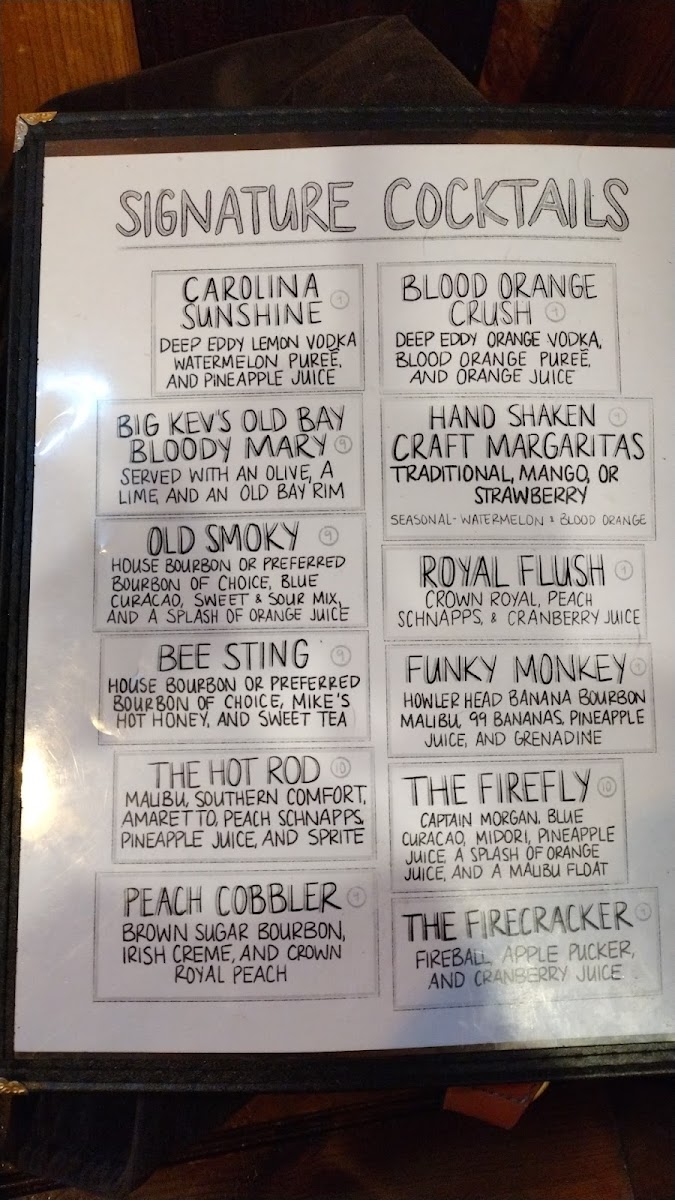 SIGNATURE COCKTAILS
CAROLINA
SUNSHINE
DEEP EDDY LEMON VODKA
WATERMELON PUREÉ,
AND PINEAPPLE JUICE
BIG KEV'S OLD BAY
BLOODY MARY 9
SERVED WITH AN OLIVE, A
LIME, AND AN OLD BAY RIM
OLD SMOKY 9
HOUSE BOURBON OR PREFERRED
BOURBON OF CHOICE, BLUE
CURACAO, SWEET & SOUR MIX,
AND A SPLASH OF ORANGE JUICE
BEE STING 9
HOUSE BOURBON OR PREFERRED
BOURBON OF CHOICE, MIKE'S
HOT HONEY, AND SWEET TEA
THE HOT ROD 10
MALIBU, SOUTHERN COMFORT,
AMARETTO, PEACH SCHNAPPS,
PINEAPPLE JUICE, AND SPRITE
PEACH COBBLER
BROWN SUGAR BOURBON,
IRISH CREME, AND CROWN
ROYAL PEACH
BLOOD ORANGE
CRUSH
DEEP EDDY ORANGE VODKA,
BLOOD ORANGE PUREÉ,
AND ORANGE JUICE
HAND SHAKEN
CRAFT MARGARITAS
TRADITIONAL, MANGO, OR
STRAWBERRY
SEASONAL- WATERMELON & BLOOD ORANGE
ROYAL FLUSH
CROWN ROYAL, PEACH
SCHNAPPS, & CRANBERRY JUICE
FUNKY MONKEY
HOWLER HEAD BANANA BOURBON
MALIBU, 99 BANANAS, PINEAPPLE
JUICE, AND GRENADINE
THE FIREFLY 10
CAPTAIN MORGAN, BLUE
CURACAO, MIDORI, PINEAPPLE
JUICE, A SPLASH OF ORANGE
JUICE, AND A MALIBU FLOAT
THE FIRECRACKER
FIREBALL, APPLE PUCKER,
AND CRANBERRY JUICE